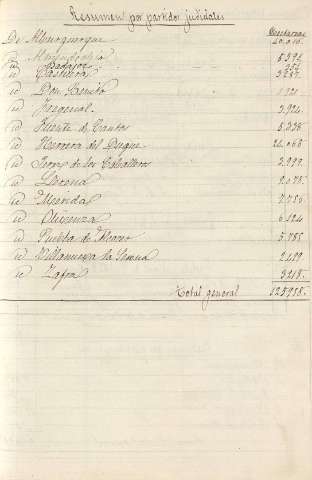 Resumen por partidos judiciales
Hectareas
De Alburquerque
id Almendralejo 5.392
id Badajoz
id Castuera
id Don Benito
id Fregenal 3.924
id Fuente de Cantos 5.338
id Herrera del Duque
id Jerez de los Caballeros
id Llerena 2.075
id Merida
id Olivenza 6.124
id Puebla de Alcocer 5.785
id Villanueva la Serena 2.499
id Zafra 3218
Total general 125.958